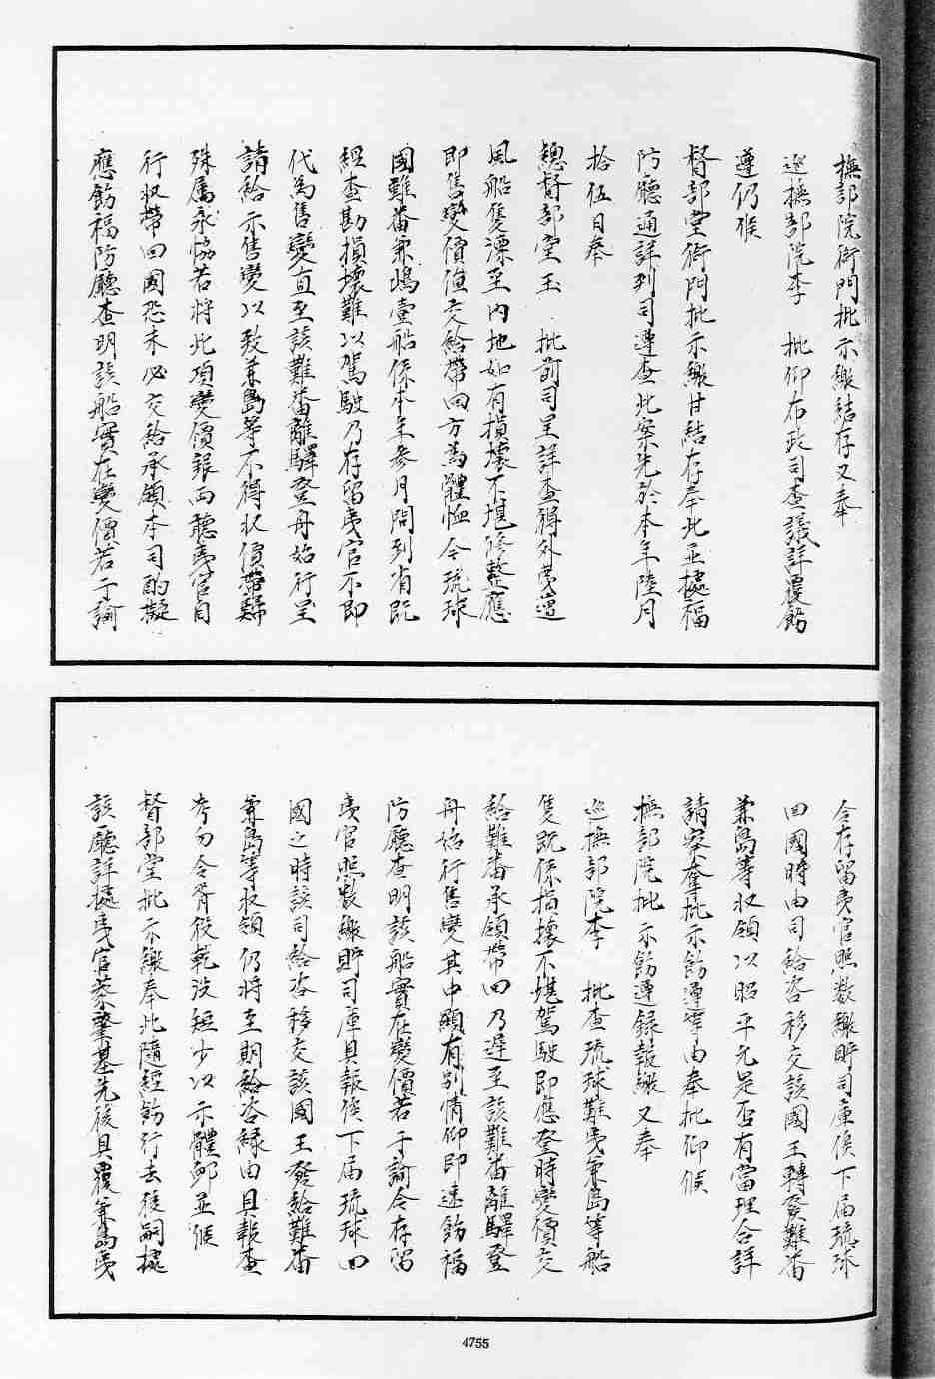 撫部院衙門批示繳結存又奉
巡撫部院李　批仰布政司查議詳覆飭
遵仍候
督部堂衙門批示繳甘結存奉此並據福
防廳通詳到司遵查此案先於本年陸月
拾伍日奉
總督部堂玉　批前司呈詳查得外夷遭
風船隻漂至內地如有損壞不堪修整應
即售變價值交給帶回方為體恤今琉球
國難番兼嶋壹船係本年參月間到省既
經查勘損壞難以駕駛乃存留夷官不即
代為售變直至該難番離驛登舟始行呈
請給示售變以致兼島等不得收價帶歸
殊屬未協若將此項變價銀兩聽夷官自
行收帶回國恐未必交給承領本司酌擬
應飭福防廳查明該船實在變價若干諭
令存留夷官照數繳貯司庫俟下届琉球
回國時由司給咨移交該國王轉發難番
兼島等收領以昭平允是否有當理合詳
請察奪批示飭遵等由奉批仰候
撫部院批示飭遵錄報繳又奉
巡撫部院李　批查琉球難夷兼島等船
隻既係損壞不堪駕駛即應登時變價交
給難番承領帶回乃遲至該難番離驛登
舟始行售變其中顯有別情仰即速飭福
防廳查明該船實在變價若干諭令存留
夷官照數繳貯司庫具報俟下届琉球回
國之時該司給咨移交該國王發給難番
兼島等收領仍將至期給咨緣由具報查
考勿令胥役乾沒短少以示體卹並候
督部堂批示繳奉此隨經飭行去後嗣據
該廳詳據夷官蔡肇基先後具覆兼島夷
4755